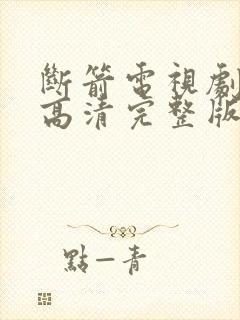 斷箭電視劇
高清完整版
點一青